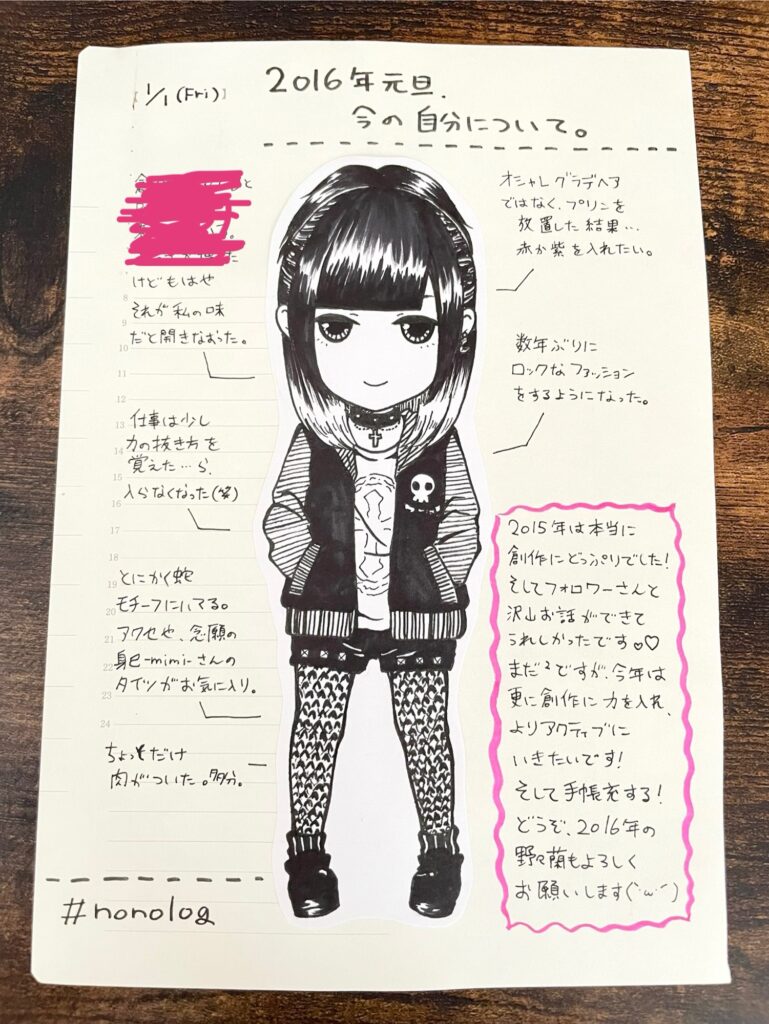 1/1(Fri)
2016年元旦.
今の自分について。
と
けどもはや
それが私の味
だと開きなおった。
仕事は少し
力の抜き方を
覚えた…ら、
入らなくなった(笑)
とにかく蛇
モチーフにハマる。
アクセや、念願の
身巳-mimi-さんの
タイツがお気に入り。
ちょっとだけ
肉がついた。多分。
#nonolog
オシャレグラデヘア
ではなく、プリンを
放置した結果…
赤か紫を入れたい。
数年ぶりに
ロックなファッション
をするようになった。
2015年は本当に
創作にどっぷりでした!
そしてフォロワーさんと
沢山お話ができて
うれしかったです♥♡
まだ²ですが、今年は
更に創作に力を入れ、
よりアクティブに
いきたいです!
そして手帳充する!
どうぞ、2016年の
野々蘭もよろしく
お願いします(`・ω・´)
8
9
10
11
12
13
14
15
16
17
18
19
20
21
22
23
24